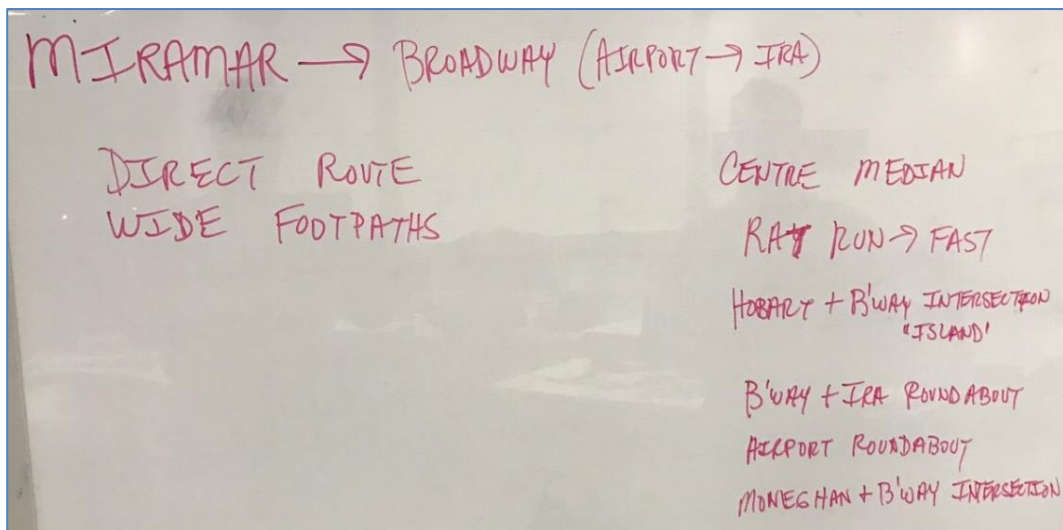 MIRAMAR → BROADWAY (AIRPORT → IRA)
DIRECT ROUTE
WIDE FOOTPATHS
CENTRE MEDIAN
RAT RUN → FAST
HOBART + B'WAY INTERSECTION
"ISLAND'
B'WAY + IRA ROUNDABOUT
AIRPORT ROUNDABOUT
MONEGHAN + B'WAY INTERSECTION